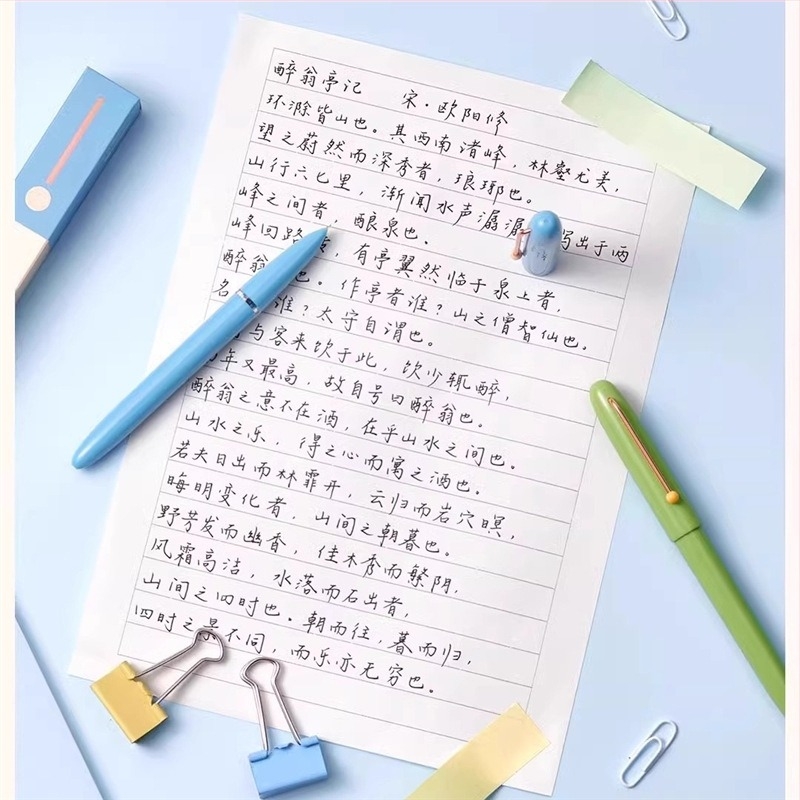 醉翁亭记 宋·欧阳修
环滁皆山也。其西南诸峰，林壑尤美，
望之蔚然而深秀者，琅琊也。
山行六七里，渐闻水声潺潺 出于两
峰之间者，酿泉也。
峰回路 ，有亭翼然临于泉上者，
醉翁 也。作亭者谁？山之僧智仙也。
名 谁？太守自谓也。
与客来饮于此，饮少辄醉，
年又最高，故自号曰醉翁也。
醉翁之意不在酒，在乎山水之间也。
山水之乐，得之心而寓之酒也。
若夫日出而林霏开，云归而岩穴暝，
晦明变化者，山间之朝暮也。
野芳发而幽香，佳木秀而繁阴，
风霜高洁，水落而石出者，
山间之四时也。朝而往，暮而归，
四时之景不同，而乐亦无穷也。